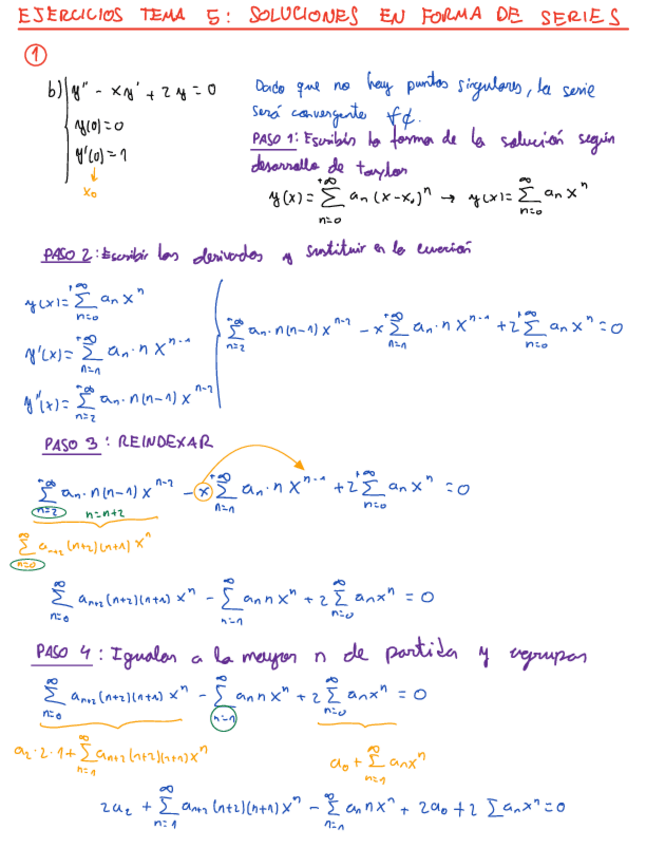 EJERCICIOS TEMA 5: SOLUCIONES EN FORMA DE SERIES
①
b) y'' - xy' + 2y = 0
y(0) = 0
y'(0) = 1
↓
x₀
Dado que no hay puntos singulares, la serie
será convergente ∀
PASO 1: Escribir la forma de la solución según
desarrollo de taylor
y(x) = ∑_{n=0}^{+∞} aₙ (x-x₀)ⁿ → y(x) = ∑_{n=0}^{∞} aₙ xⁿ
PASO 2: Escribir las derivadas y sustituir en la ecuación
y(x) = ∑_{n=0}^{+∞} aₙ xⁿ
y'(x) = ∑_{n=1}^{+∞} aₙ · n xⁿ⁻¹
y''(x) = ∑_{n=2}^{+∞} aₙ · n(n-1) xⁿ⁻²
∑_{n=2}^{+∞} aₙ · n(n-1) xⁿ⁻² - x ∑_{n=1}^{+∞} aₙ · n xⁿ⁻¹ + 2 ∑_{n=0}^{+∞} aₙ xⁿ = 0
PASO 3: REINDEXAR
∑_{n=2}^{+∞} aₙ · n(n-1) xⁿ⁻² - x ∑_{n=1}^{+∞} aₙ · n xⁿ⁻¹ + 2 ∑_{n=0}^{+∞} aₙ xⁿ = 0
n=n+2
∑_{n=0}^{∞} aₙ₊₂ (n+2)(n+1) xⁿ
∑_{n=0}^{∞} aₙ₊₂ (n+2)(n+1) xⁿ - ∑_{n=1}^{∞} aₙ n xⁿ + 2 ∑_{n=0}^{∞} aₙ xⁿ = 0
PASO 4: Igualar a la mayor n de partida y agrupar
∑_{n=0}^{∞} aₙ₊₂ (n+2)(n+1) xⁿ - ∑_{n=1}^{∞} aₙ n xⁿ + 2 ∑_{n=0}^{∞} aₙ xⁿ = 0
a₂ · 2 · 1 + ∑_{n=1}^{∞} aₙ₊₂ (n+2)(n+1) xⁿ
a₀ + ∑_{n=1}^{∞} aₙ xⁿ
2a₂ + ∑_{n=1}^{∞} aₙ₊₂ (n+2)(n+1) xⁿ - ∑_{n=1}^{∞} aₙ n xⁿ + 2a₀ + 2 ∑ aₙ xⁿ = 0